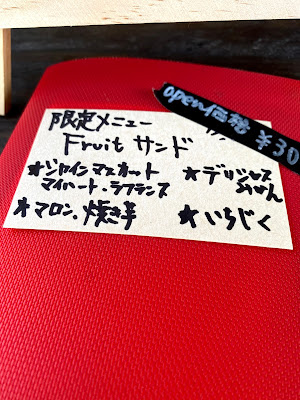 open価格 ¥30
限定メニュー
Fruit サンド
★シャインマスカット
マイハート・ラフランス
★マロン・焼き芋
★デリシャス
みかん
★いちじく